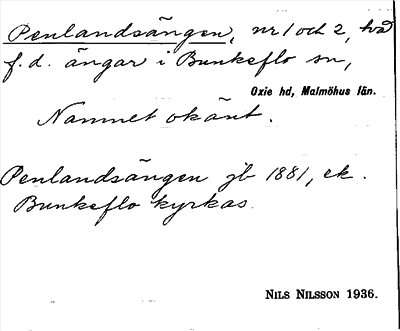 Penlandsängen, nr 1 och 2, två
f.d. ängar i Bunkeflo sn,
Oxie hd, Malmöhus län.
Namnet okänt.
Penlandsängen jb 1881, ek.
Bunkeflo kyrkas.
NILS NILSSON 1936.